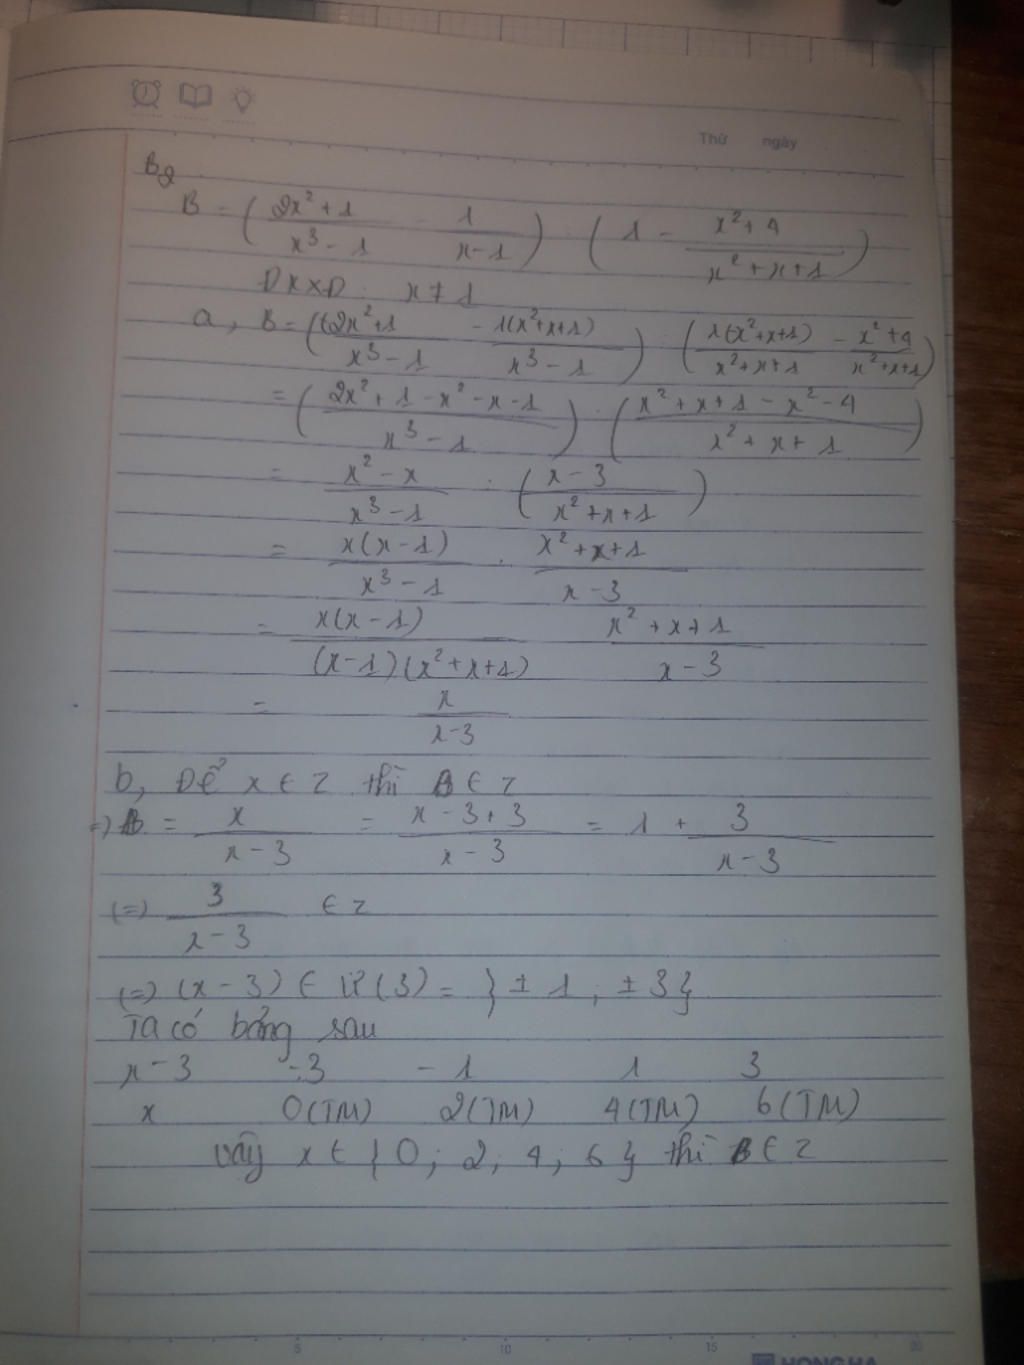 Thứ ngày
B2
B = ( (2x² + 1)/(x³ - 1) - 1/(x-1) ) : ( 1 - (x² + 4)/(x² + x + 1) )
ĐKXĐ: x ≠ 1
a, B = ( (2x²+1)/(x³ - 1) - 1(x²+x+1)/(x³ - 1) ) : ( 1(x²+x+1)/(x²+x+1) - (x²+4)/(x²+x+1) )
= ( (2x² + 1 - x² - x - 1)/(x³ - 1) ) : ( (x² + x + 1 - x² - 4)/(x² + x + 1) )
= (x² - x)/(x³ - 1) : ( (x - 3)/(x² + x + 1) )
= x(x - 1)/(x³ - 1) . (x² + x + 1)/(x - 3)
= x(x - 1)/((x-1)(x² + x + 1)) (x² + x + 1)/(x - 3)
= x/(x-3)
b, Để x ∈ Z thì B ∈ Z
=) B = x/(x - 3) = (x - 3 + 3)/(x - 3) = 1 + 3/(x - 3)
(=) 3/(x - 3) ∈ Z
(=) (x - 3) ∈ Ư(3) = } ± 1 ; ± 3 }
Ta có bảng sau
x - 3 -3 - 1 1 3
x 0 (TM) 2 (TM) 4 (TM) 6 (TM)
vậy x ∈ { 0 ; 2 ; 4 ; 6 } thì B ∈ Z
5 10 15 20
HONG HA